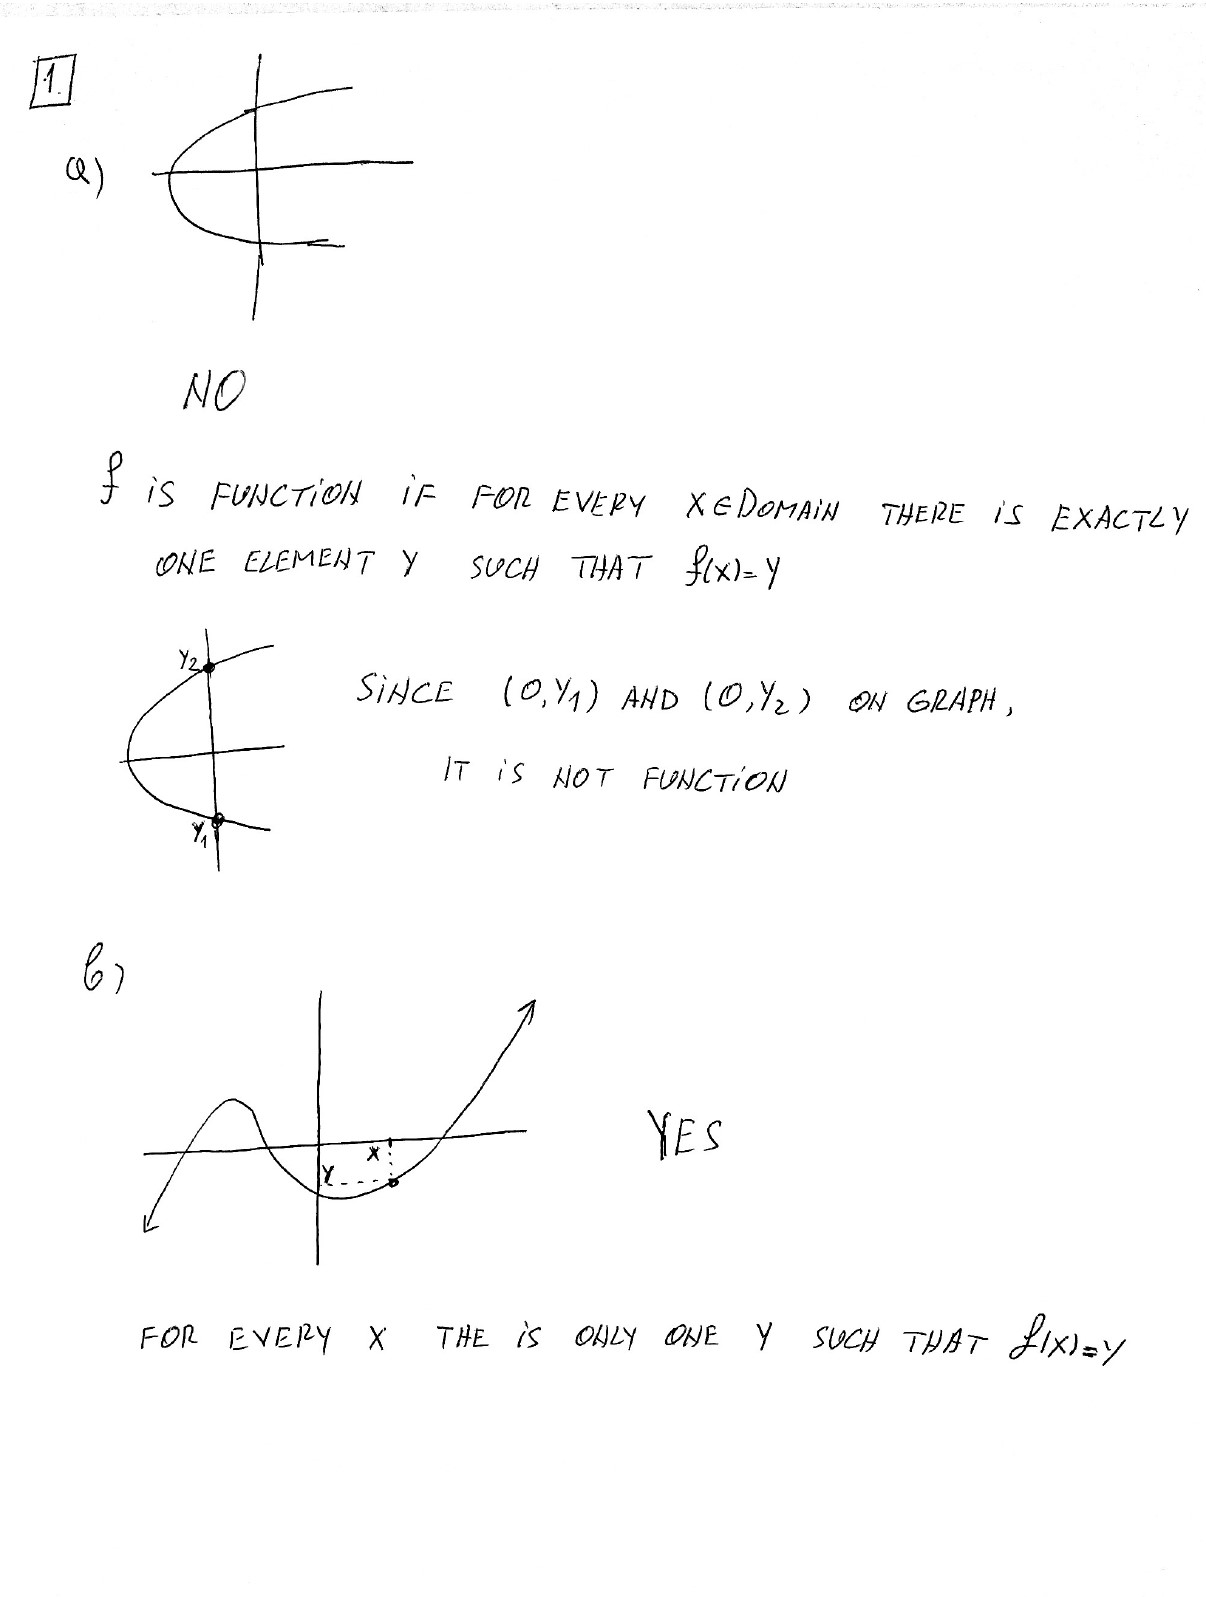 1.
a)
NO
f iS FUNCTiON iF FOR EVERY X∈DOMAiN THERE iS EXACTLY
ONE ELEMENT Y SUCH THAT f(x)=y
Y2
SiNCE (0,Y1) AND (0,Y2) ON GRAPH,
IT iS NOT FUNCTiON
Y1
b)
YES
X
Y
FOR EVERY X THE iS ONLY ONE Y SUCH THAT f(x)=y